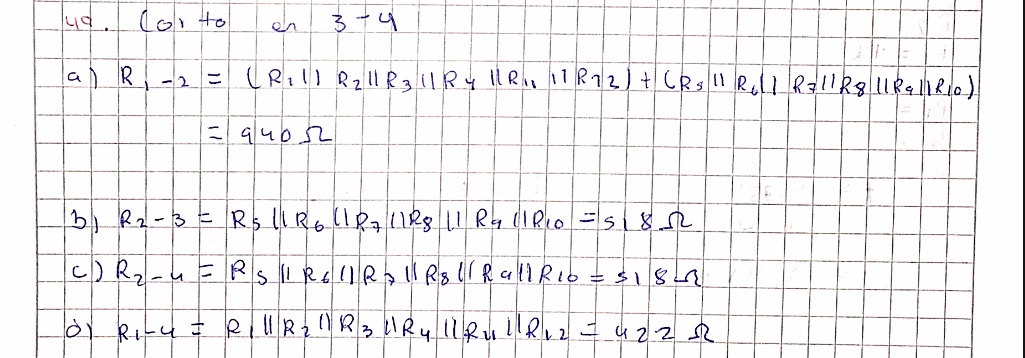 49. Corto en 3-4
a) R1-2 = (R1 || R2 || R3 || R4 || R11 || R12) + (R5 || R6 || R7 || R8 || R9 || R10)
= 940 Ω
b) R2-3 = R5 || R6 || R7 || R8 || R9 || R10 = 518 Ω
c) R2-4 = R5 || R6 || R7 || R8 || R9 || R10 = 518 Ω
d) R1-4 = R1 || R2 || R3 || R4 || R11 || R12 = 422 Ω